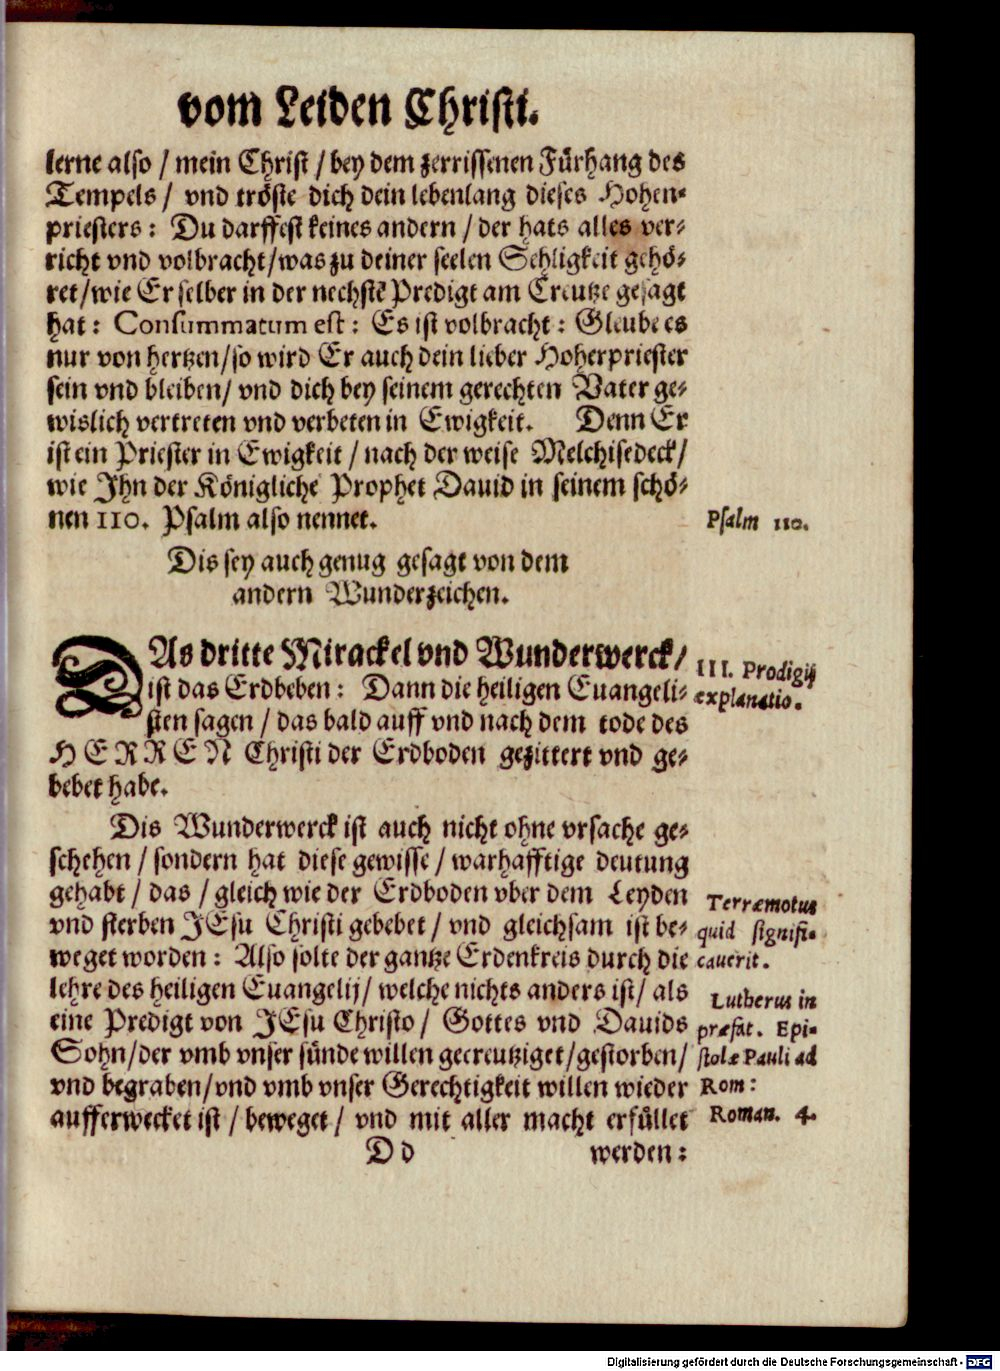 vom Leiden Chriſti.
lerne alſo / mein Chriſt / bey dem zerriſſenen Fürhang des
Tempels / vnd tröſte dich dein lebenlang dieſes Hohen-
prieſters : Du darffeſt keines andern / der hats alles ver-
richt vnd volbracht/was zu deiner seelen Sehligkeit gehö-
ret/wie Er ſelber in der nechſtẽ Predigt am Creutze geſagt
hat : Conſummatum eſt : Es iſt volbracht : Gleube es
nur von hertzen/ſo wird Er auch dein lieber Hoherprieſter
ſein vnd bleiben/ vnd dich bey ſeinem gerechten Vater ge-
wislich vertreten vnd verbeten in Ewigkeit. Denn Er
iſt ein Prieſter in Ewigkeit / nach der weiſe Melchiſedeck/
wie Ihn der Königliche Prophet Dauid in ſeinem ſchö-
nen 110. Pſalm alſo nennet.
Pſalm 110.
Dis ſey auch genug geſagt von dem
andern Wunderzeichen.
DAs dritte Mirackel vnd Wunderwerck/
III. Prodigij
iſt das Erdbeben : Dann die heiligen Euangeli-
explanatio.
ſten ſagen / das bald auff vnd nach dem tode des
HERREN Chriſti der Erdboden gezittert vnd ge-
bebet habe.
Dis Wunderwerck iſt auch nicht ohne vrſache ge-
ſchehen / ſondern hat dieſe gewiſſe / warhafftige deutung
gehabt / das / gleich wie der Erdboden vber dem Leyden
Terræmotus
vnd ſterben JEſu Chriſti gebebet / vnd gleichſam iſt be-
quid ſignifi-
weget worden : Alſo ſolte der gantze Erdenkreis durch die
cauerit.
lehre des heiligen Euangelij/ welche nichts anders iſt/ als
Lutherus in
eine Predigt von JEſu Chriſto / Gottes vnd Dauids
præfat. Epi-
Sohn/der vmb vnſer ſünde willen gecreutziget/geſtorben/
ſtolæ Pauli ad
vnd begraben/vnd vmb vnſer Gerechtigkeit willen wieder
Rom :
aufferwecket iſt / beweget / vnd mit aller macht erfüllet
Roman. 4.
D d
werden :
Digitalisierung gefördert durch die Deutsche Forschungsgemeinschaft - DFG